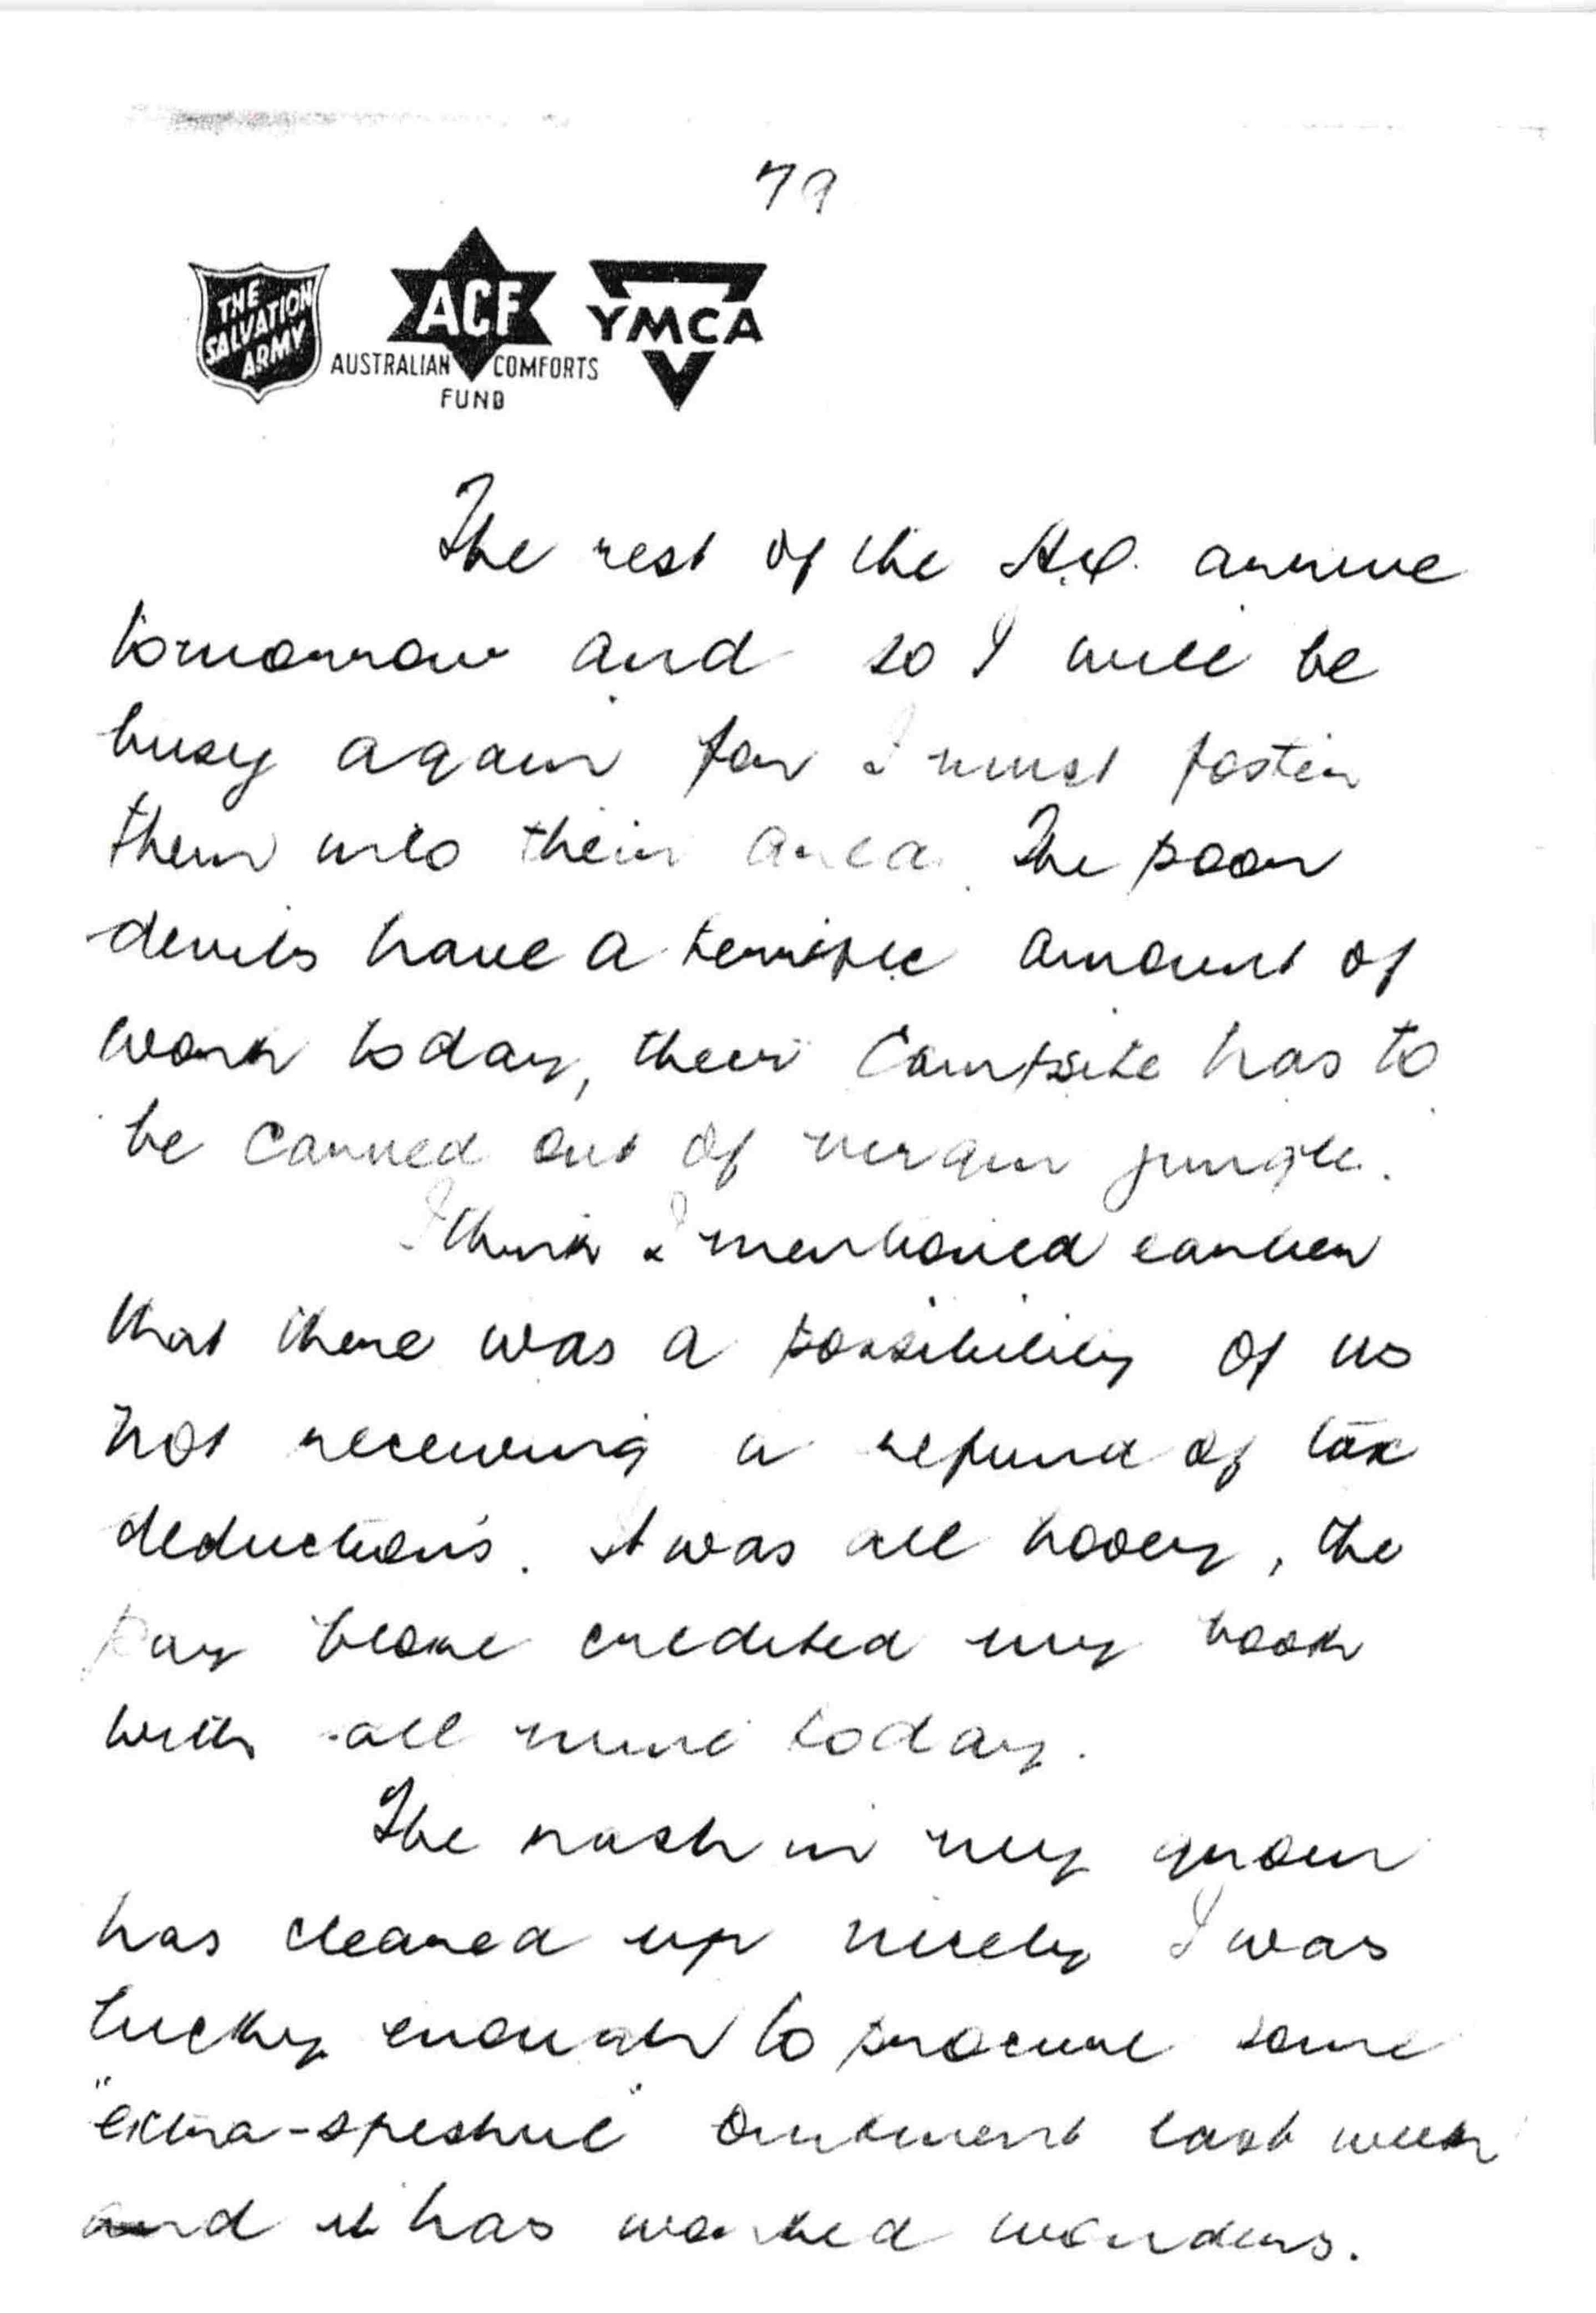 79
THE SALVATION ARMY
ACF
AUSTRALIAN COMFORTS FUND
YMCA
The rest of the H.Q. arrive
tomorrow and so I will be
busy again for I must foster
them into their area. The poor
devils have a terrific amount of
work today, their campsite has to
be carved out of virgin jungle.
I think I mentioned earlier
that there was a possibility of us
not receiving a refund of tax
deductions. It was all hooey, the
pay bloke credited my book
with all mine today.
The rash in my groin
has cleared up nicely I was
lucky enough to procure some
"extra-speshul" ointment last week
and it has worked wonders.